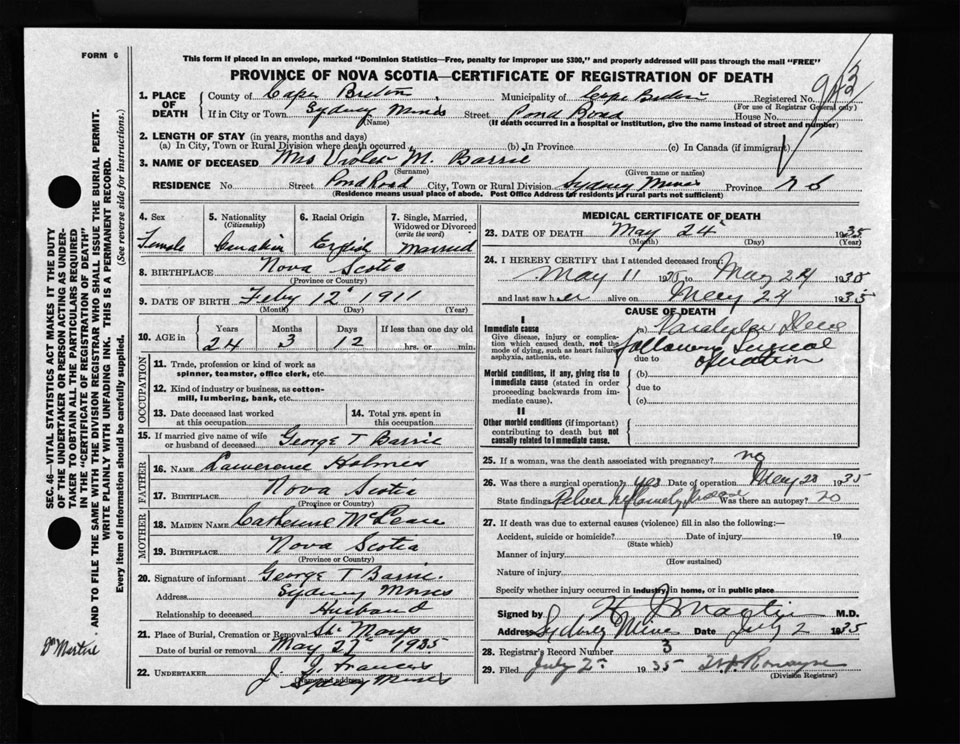 FORM 6
This form if placed in an envelope, marked "Dominion Statistics—Free, penalty for improper use $300," and properly addressed will pass through the mail "FREE"
PROVINCE OF NOVA SCOTIA—CERTIFICATE OF REGISTRATION OF DEATH
1. PLACE OF DEATH
County of Cape Breton Municipality of Cape Breton Registered No.
(For use of Registrar General only)
If in City or Town Sydney Mines Street Pond Road House No.
(Name) (If death occurred in a hospital or institution, give the name instead of street and number)
2. LENGTH OF STAY (in years, months and days)
(a) In City, Town or Rural Division where death occurred (b) In Province (c) In Canada (if immigrant)
3. NAME OF DECEASED Mrs Violet M. Barrie
(Surname) (Given name or names)
RESIDENCE No. Street Pond Road City, Town or Rural Division Sydney Mines Province N S
(Residence means usual place of abode. Post Office Address for residents in rural parts not sufficient)
4. Sex Female
5. Nationality (Citizenship) Canadian
6. Racial Origin English
7. Single, Married, Widowed or Divorced (write the word) Married
8. BIRTHPLACE Nova Scotia
(Province or Country)
9. DATE OF BIRTH Feby 12 1911
(Month) (Day) (Year)
10. AGE in Years 24 Months 3 Days 12 If less than one day old hrs. or min.
OCCUPATION
11. Trade, profession or kind of work as spinner, teamster, office clerk, etc.
12. Kind of industry or business, as cotton-mill, lumbering, bank, etc.
13. Date deceased last worked at this occupation
14. Total yrs. spent in this occupation
15. If married give name of wife or husband of deceased George T Barrie
FATHER
16. NAME Lawerence Holmes
17. BIRTHPLACE Nova Scotia
(Province or Country)
MOTHER
18. MAIDEN NAME Catherine McLean
19. BIRTHPLACE Nova Scotia
(Province or Country)
20. Signature of informant George T Barrie.
Address Sydney Mines
Relationship to deceased Husband
21. Place of Burial, Cremation or Removal St Marys
Date of burial or removal May 27 1935
22. UNDERTAKER J. J. Frances
Sydney Mines
MEDICAL CERTIFICATE OF DEATH
23. DATE OF DEATH May 24 1935
(Month) (Day) (Year)
24. I HEREBY CERTIFY that I attended deceased from:
May 11 1935 to May 24 1935
and last saw her alive on May 24 1935
CAUSE OF DEATH
I
Immediate cause
Give disease, injury or complication which caused death, not the mode of dying, such as heart failure, asphyxia, asthenia, etc.
(a) Paralytic Ileus
following surgical
due to operation
Morbid conditions, if any, giving rise to immediate cause (stated in order proceeding backwards from immediate cause).
(b)
due to
(c)
II
Other morbid conditions (if important) contributing to death but not causally related to immediate cause.
25. If a woman, was the death associated with pregnancy? no
26. Was there a surgical operation? yes Date of operation May 20 1935
State findings Pelvic Inflamatory Disease Was there an autopsy? no
27. If death was due to external causes (violence) fill in also the following:—
Accident, suicide or homicide? Date of injury 19
(State which)
Manner of injury
(How sustained)
Nature of injury
Specify whether injury occurred in industry, in home, or in public place
Signed by Martin M.D.
Address Sydney Mines Date July 2 1935
28. Registrar's Record Number 3
29. Filed July 2 1935
(Division Registrar)
SEC. 46—VITAL STATISTICS ACT MAKES IT THE DUTY
OF THE UNDERTAKER OR PERSON ACTING AS UNDER-
TAKER TO OBTAIN ALL THE PARTICULARS REQUIRED
IN THE "CERTIFICATE OF REGISTRATION OF DEATH"
AND TO FILE THE SAME WITH THE DIVISION REGISTRAR WHO SHALL ISSUE THE BURIAL PERMIT.
WRITE PLAINLY WITH UNFADING INK. THIS IS A PERMANENT RECORD.
Every item of information should be carefully supplied. (See reverse side for instructions.)